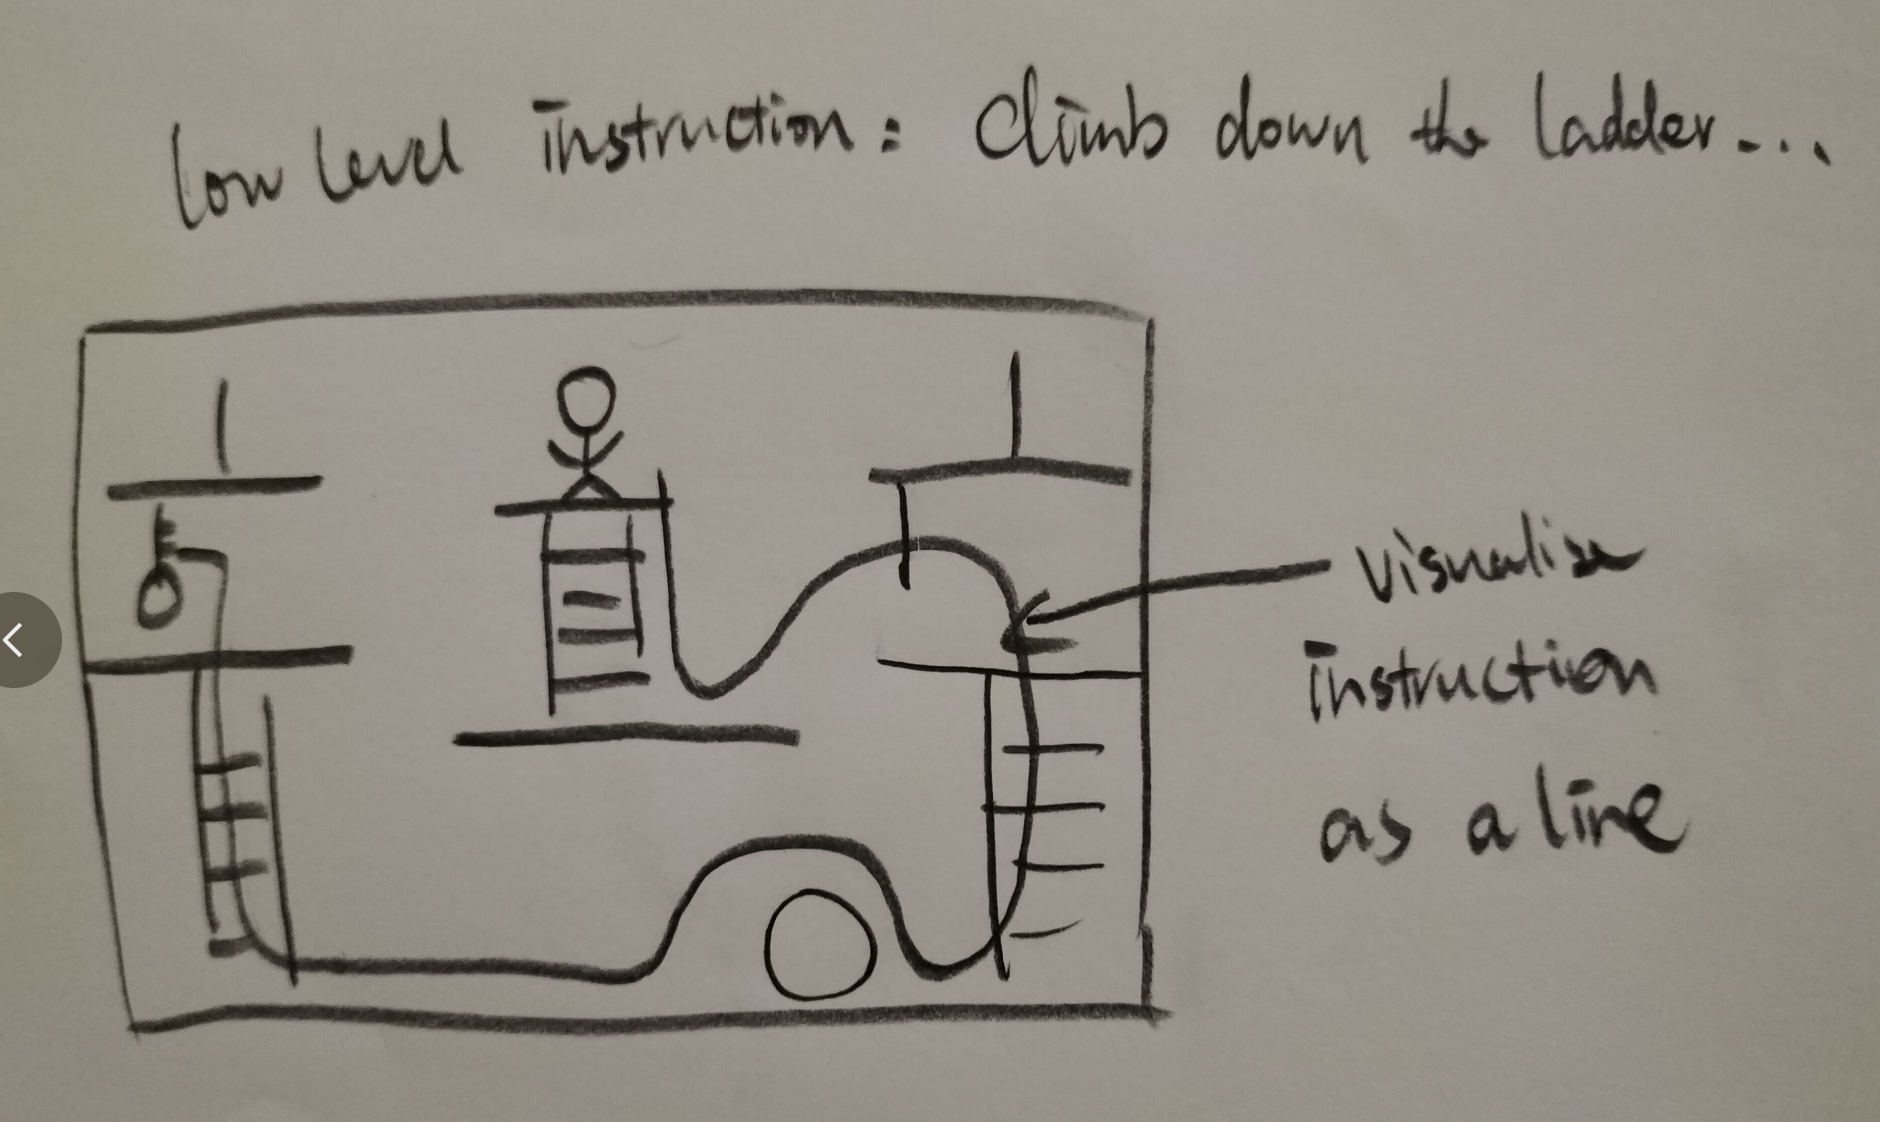 Low level instruction: Climb down the ladder...
Visualise
instruction
as a line